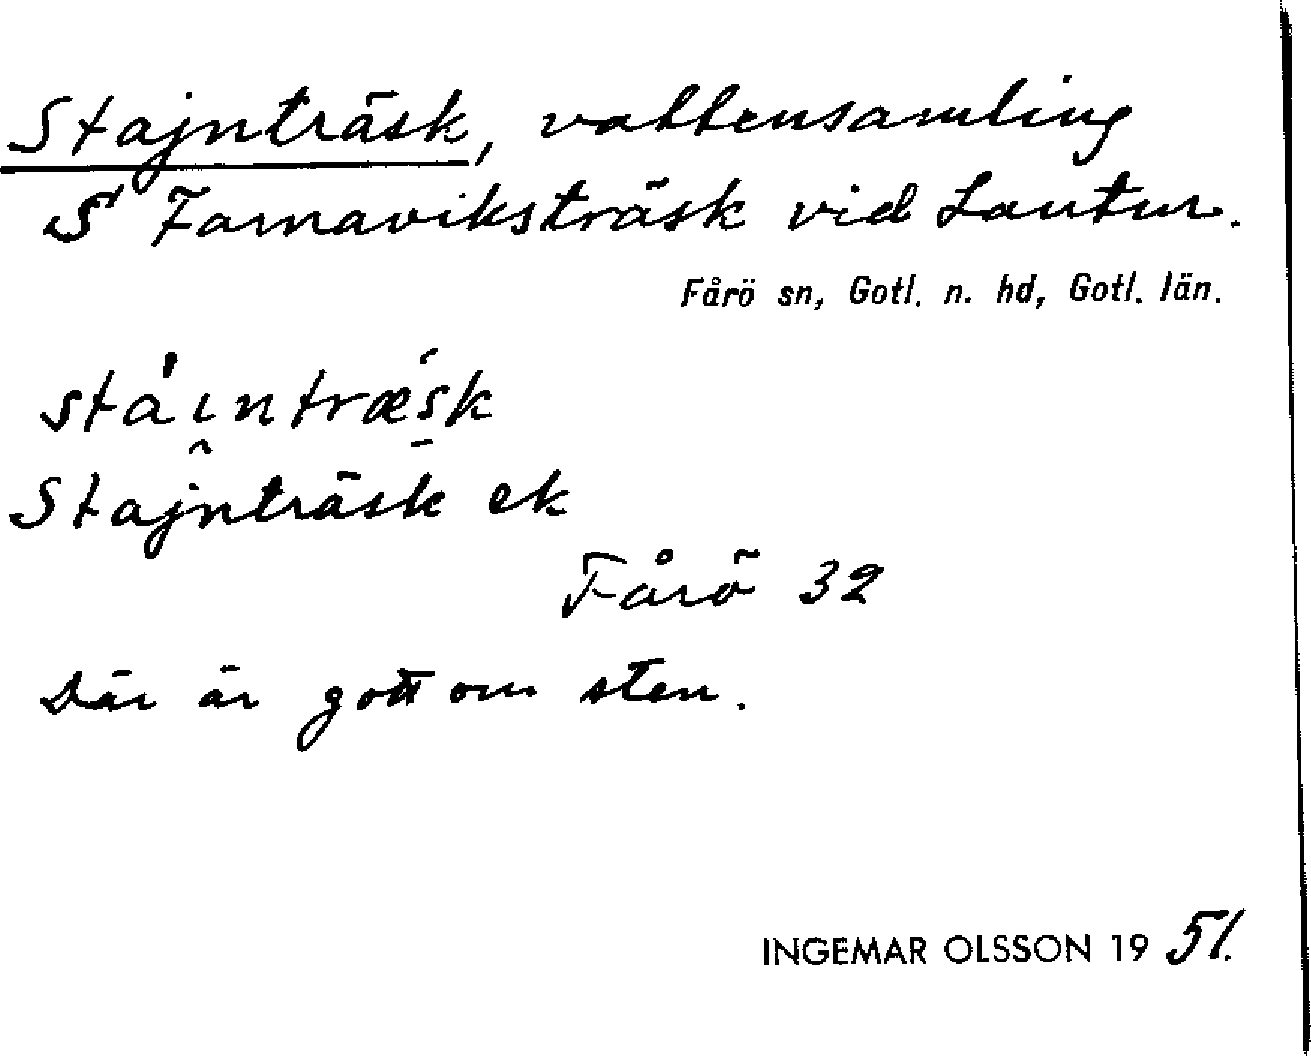 Stajnträsk, vattensamling
S Farnaviksträsk vid Lautur.
Fårö sn, Gotl. n. hd, Gotl. län.
stàı̯ntræ̀s̱k
Stajnträsk ek
Fårö 32
Där är gott om sten.
INGEMAR OLSSON 19 51.